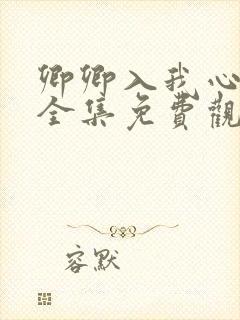 卿卿入我心
全集免費觀
容默